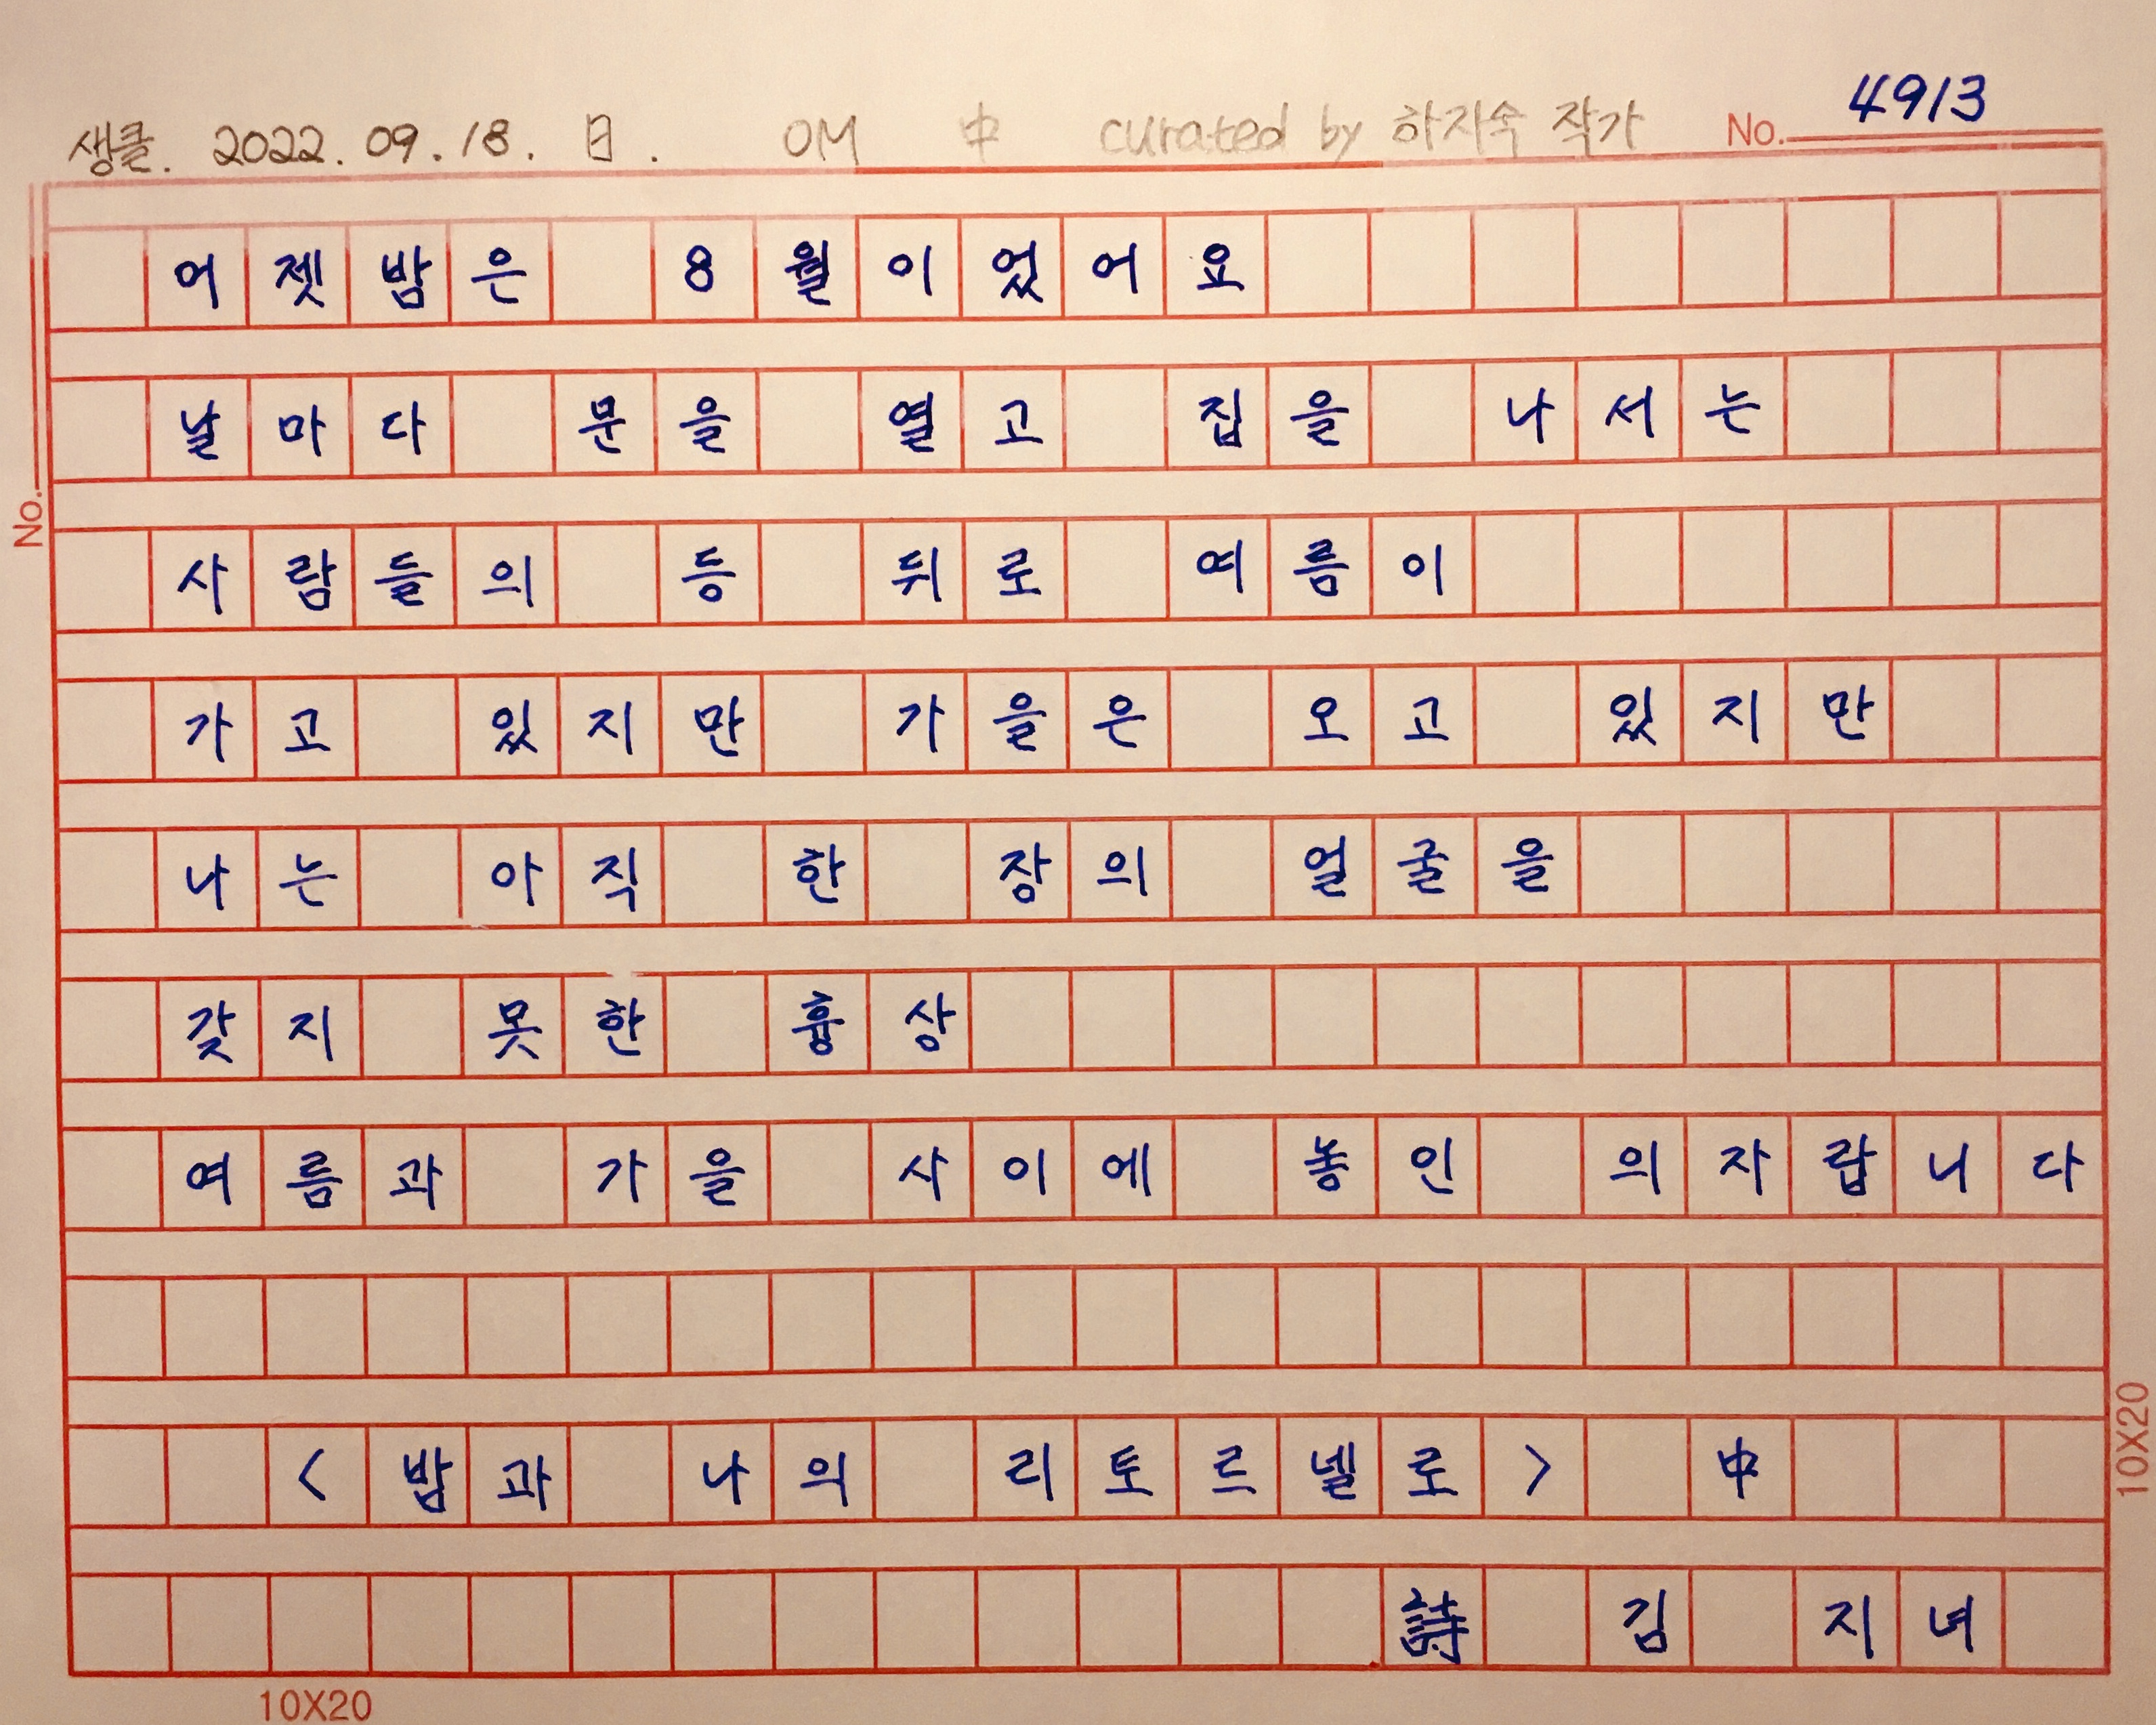 생클. 2022. 09. 18. 日. OM 中 curated by 하지숙 작가 No. 4913
어젯밤은 8월이었어요
날마다 문을 열고 집을 나서는
No.
사람들의 등 뒤로 여름이
가고 있지만 가을은 오고 있지만
나는 아직 한 장의 얼굴을
갖지 못한 흉상
여름과 가을 사이에 놓인 의자랍니다
<밤과 나의 리토르넬로> 中
10X20
詩 김 지녀
10X20